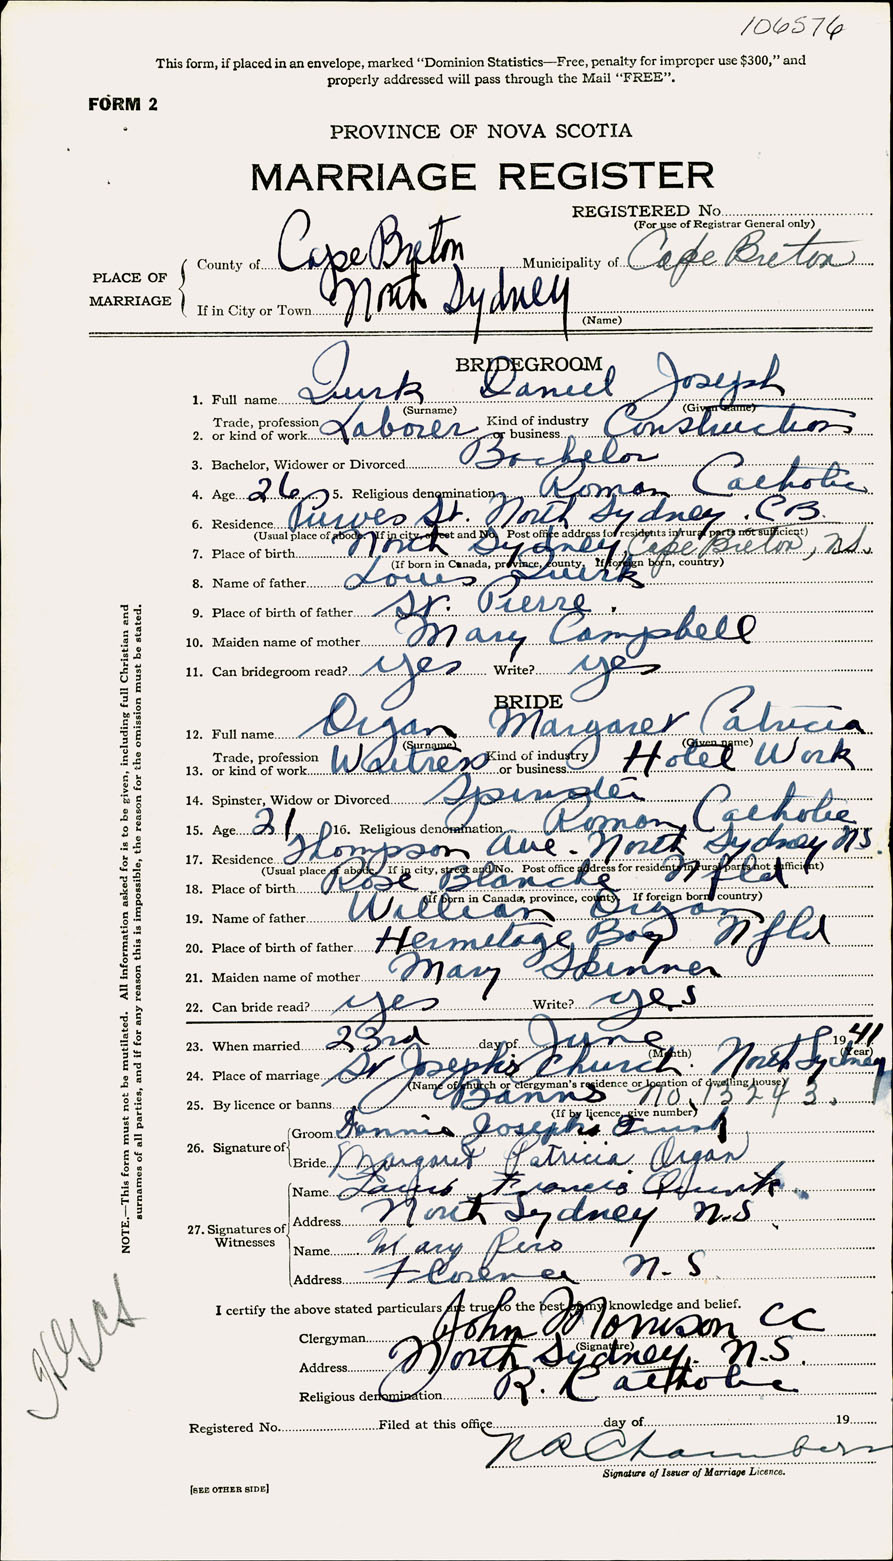 106576
This form, if placed in an envelope, marked “Dominion Statistics—Free, penalty for improper use $300,” and
properly addressed will pass through the Mail “FREE”.
FORM 2
PROVINCE OF NOVA SCOTIA
MARRIAGE REGISTER
REGISTERED No.
(For use of Registrar General only)
PLACE OF MARRIAGE
County of Cape Breton Municipality of Cape Breton
If in City or Town North Sydney
(Name)
BRIDEGROOM
1. Full name Quirk Daniel Joseph
(Surname) (Given name)
Trade, profession Kind of industry
2. or kind of work Laborer or business Construction
3. Bachelor, Widower or Divorced Bachelor
4. Age 26 5. Religious denomination Roman Catholic
6. Residence Purves St. North Sydney. C.B.
(Usual place of abode. If in city, street and No. Post office address for residents in rural parts not sufficient)
7. Place of birth North Sydney Cape Breton, N.S.
(If born in Canada, province, county. If foreign born, country)
8. Name of father Louis Quirk
9. Place of birth of father St. Pierre.
10. Maiden name of mother Mary Campbell
11. Can bridegroom read? yes Write? yes
BRIDE
12. Full name Organ Margaret Patricia
(Surname) (Given name)
Trade, profession Kind of industry
13. or kind of work Waitress or business Hotel Work
14. Spinster, Widow or Divorced Spinster
15. Age 21 16. Religious denomination Roman Catholic
17. Residence Thompson Ave. North Sydney N.S.
(Usual place of abode. If in city, street and No. Post office address for residents in rural parts not sufficient)
18. Place of birth Rose Blanche Nfld
(If born in Canada, province, county. If foreign born, country)
19. Name of father William Organ
20. Place of birth of father Hermitage Bay Nfld
21. Maiden name of mother Mary Skinner
22. Can bride read? yes Write? yes
23. When married 23rd day of June 1941
(Month) (Year)
24. Place of marriage St Joseph's Church. North Sydney
(Name of church or clergyman's residence or location of dwelling house)
25. By licence or banns Banns No. 13243.
(If by licence, give number)
26. Signature of
Groom Dannie Joseph Quirk
Bride Margaret Patricia Organ
27. Signatures of Witnesses
Name Louis Francis Quirk
Address North Sydney N.S.
Name Mary Pero
Address Florence N.S
I certify the above stated particulars are true to the best of my knowledge and belief.
Clergyman John Morrison CC
(Signature)
Address North Sydney. N.S.
Religious denomination R. Catholic
Registered No. Filed at this office day of 19
Chambers
Signature of Issuer of Marriage Licence.
[SEE OTHER SIDE]
NOTE.—This form must not be mutilated. All Information asked for is to be given, including full Christian and
surnames of all parties, and if for any reason this is impossible, the reason for the omission must be stated.